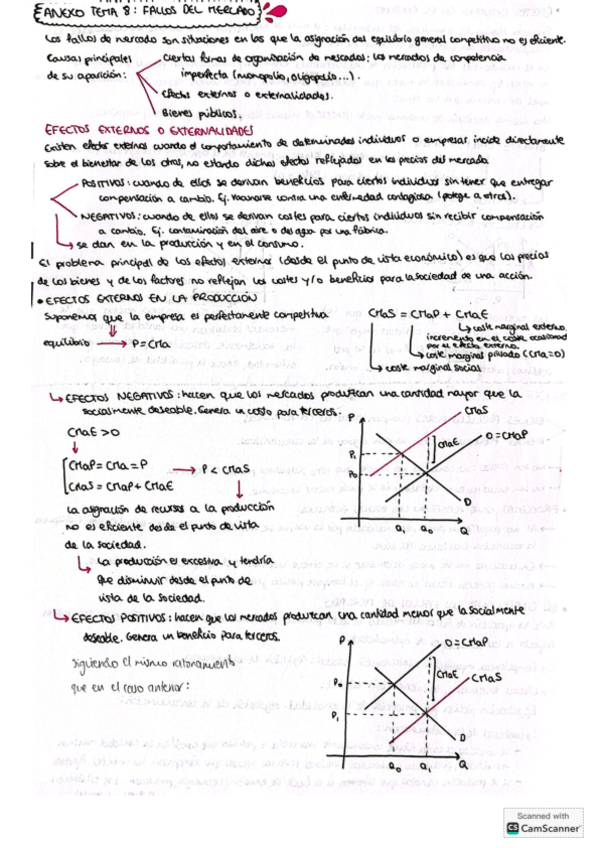 ANEXO TEMA 8: FALLOS DEL MERCADO
Los fallos de mercado son situaciones en los que la asignación del equilibrio general competitivo no es eficiente.
Causas principales
de su aparición:
Ciertas formas de organización de mercados: los mercados de competencia
imperfecta (monopolio, oligopolio...).
Efectos externos o externalidades.
Bienes públicos.
EFECTOS EXTERNOS O EXTERNALIDADES
Existen efectos externos cuando el comportamiento de determinados individuos o empresas incide directamente
sobre el bienestar de los otros, no estando dichos efectos reflejados en los precios del mercado.
POSITIVAS: cuando de ellos se derivan beneficios para ciertos individuos sin tener que entregar
compensación a cambio. Ej. Vacunarse contra una enfermedad contagiosa (protege a otros).
NEGATIVAS: cuando de ellas se derivan costes para ciertos individuos sin recibir compensación
a cambio. Ej. contaminación del aire o del agua por una fábrica.
se dan en la producción y en el consumo.
El problema principal de los efectos externos (desde el punto de vista económico) es que los precios
de los bienes y de los factores no reflejan los costes y/o beneficios para la sociedad de una acción.
• EFECTOS EXTERNOS EN LA PRODUCCIÓN
Suponemos que la empresa es perfectamente competitiva.
equilibrio → P = CMa
CMaS = CMaP + CMaE
coste marginal externo.
incremento en el coste ocasionado
por el efecto externo.
coste marginal privado (CMa=O)
coste marginal social
EFECTOS NEGATIVOS: hacen que los mercados produzcan una cantidad mayor que la
socialmente deseable. Genera un costo para terceros.
CMaE > 0
CMaP = CMa = P → P < CMaS
CMaS = CMaP + CMaE
la asignación de recursos a la producción
no es eficiente desde el punto de vista
de la sociedad.
La producción es excesiva y tendría
que disminuir desde el punto de
vista de la sociedad.
P
CMaS
O=CMaP
CMaE
P₁
P₀
D
Q₁ Q₀ Q
EFECTOS POSITIVOS: hacen que los mercados produzcan una cantidad menor que la socialmente
deseable. Genera un beneficio para terceros.
siguiendo el mismo razonamiento
que en el caso anterior:
P
O=CMaP
CMaE
CMaS
P₀
P₁
D
Q₀ Q₁ Q
Scanned with
CS CamScanner